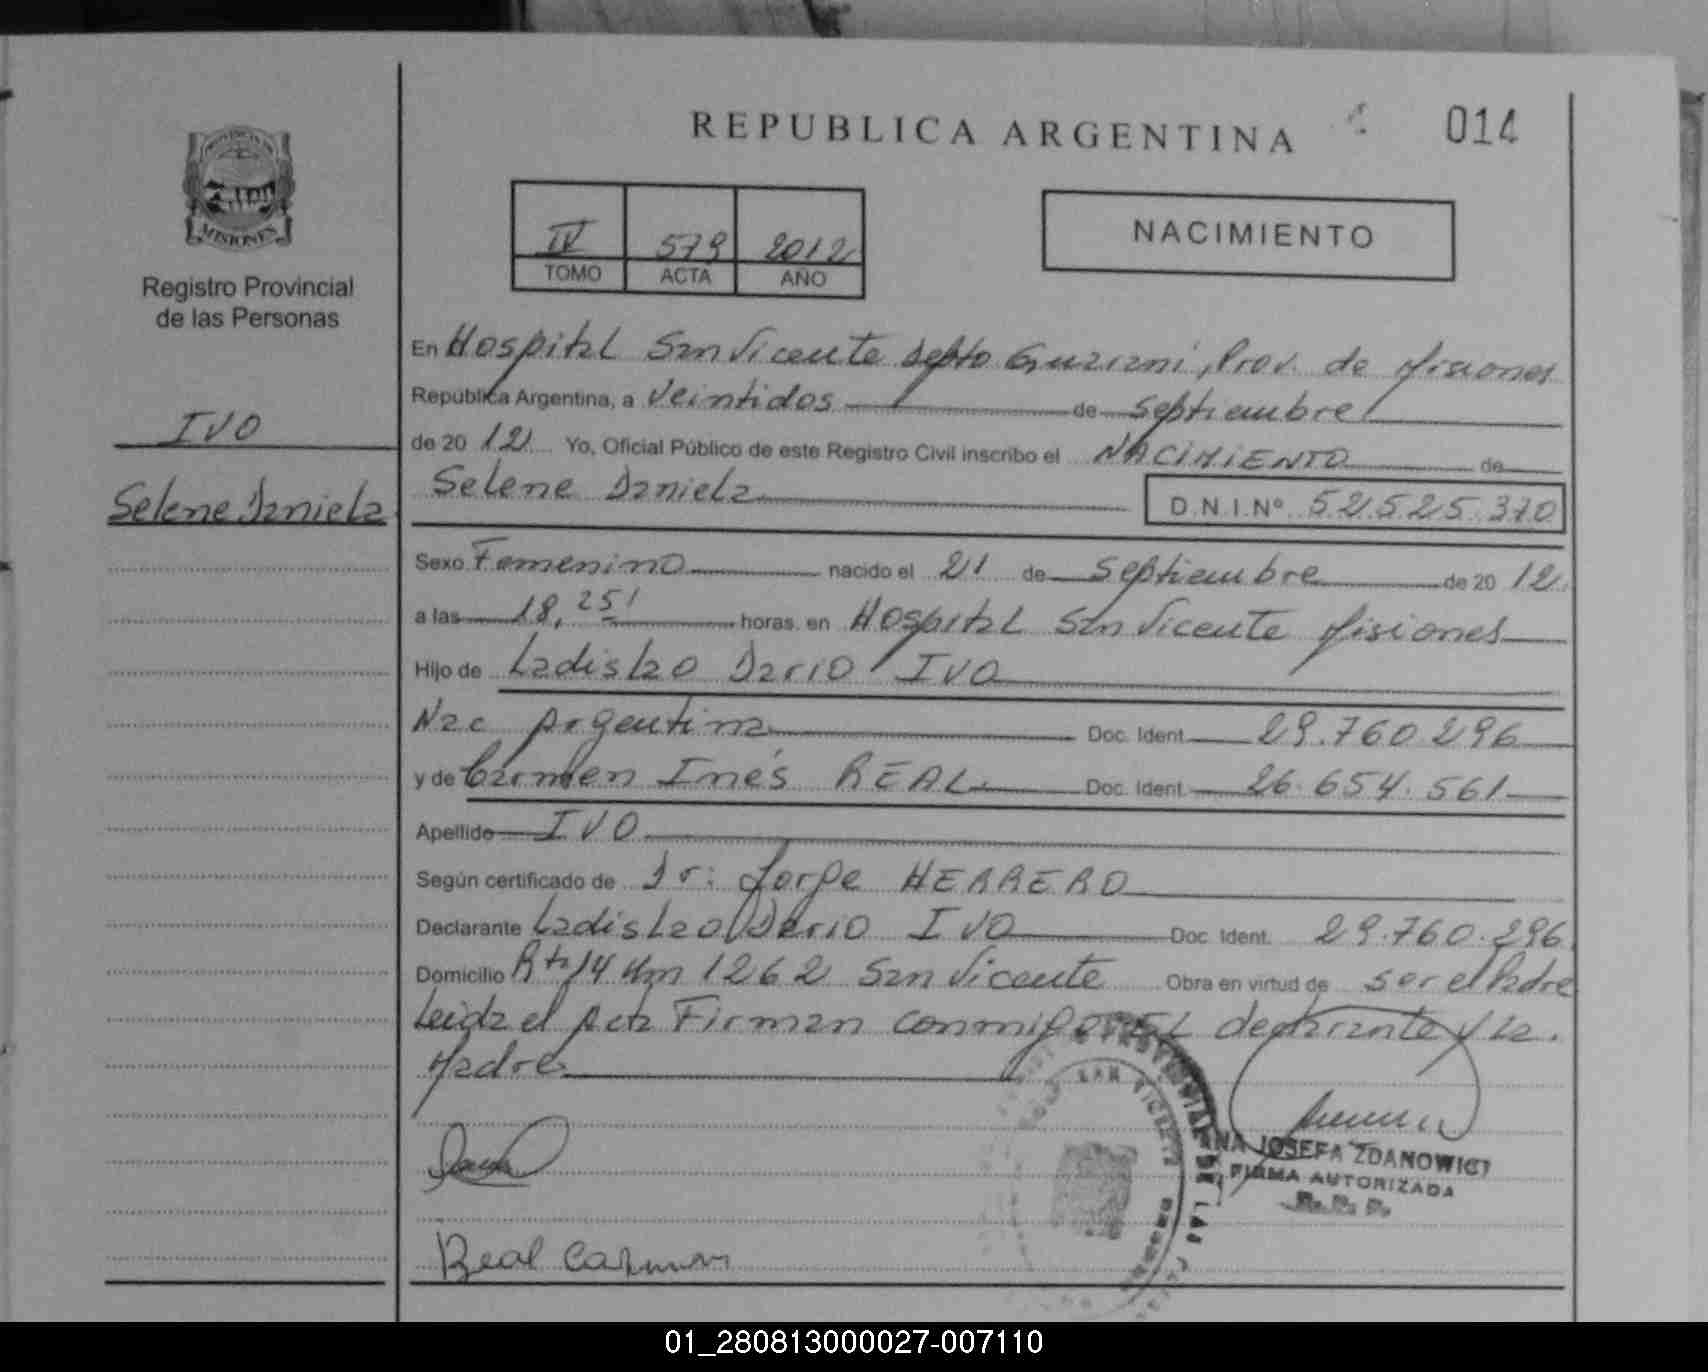 REPUBLICA ARGENTINA
014
PROVINCIA DE
MISIONES
Registro Provincial
de las Personas
IV 579 2012
TOMO ACTA AÑO
NACIMIENTO
IVO
Selene Daniela
En Hospital San Vicente Depto Guarani, Prov. de Misiones
República Argentina, a Veintidos de Septiembre
de 20 12 Yo, Oficial Público de este Registro Civil inscribo el NACIMIENTO de
Selene Daniela D.N.I.Nº 52.525.370
Sexo Femenino nacido el 21 de Septiembre de 20 12.
a las 18,25' horas en Hospital San Vicente Misiones
Hijo de Ladislao Dario IVO
Nac Argentina Doc. Ident. 29.760.296
y de Carmen Inés REAL Doc. Ident. 26.654.561
Apellido IVO
Según certificado de Dr: Jorge HERRERO
Declarante Ladislao Dario IVO Doc. Ident. 29.760.296
Domicilio Rta 14 Km 1262 San Vicente Obra en virtud de ser el Padre
Leida el Acta Firman conmigo EL declarante y la
Madre
ANA JOSEFA ZDANOWICZ
FIRMA AUTORIZADA
R. P. P.
Real Carmen
01_280813000027-007110